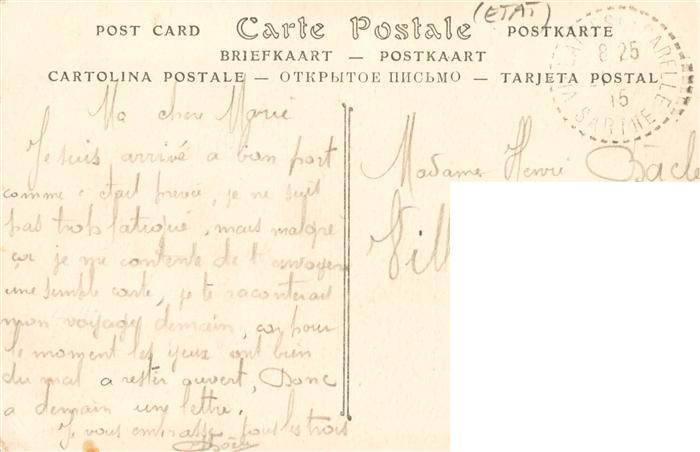 (ETAT)
POST CARD Carte Postale POSTKARTE
BRIEFKAART — POSTKAART
CARTOLINA POSTALE — ОТКРЫТОЕ ПИСЬМО — TARJETA POSTAL
8 25
15
SARTHE
Ma chere Marie
Je suis arrivé a bon port
comme c'etait prevu, je ne suit
pas trop fatigué, mais malgré
ça je me contente de t'envoyer
une simple carte, je te raconterais
mon voyage demain, car pour
le moment les yeux ont bien
du mal a rester ouvert, Donc
a demain une lettre.
Je vous embrasse tous les trois
Madame Henri
Vill